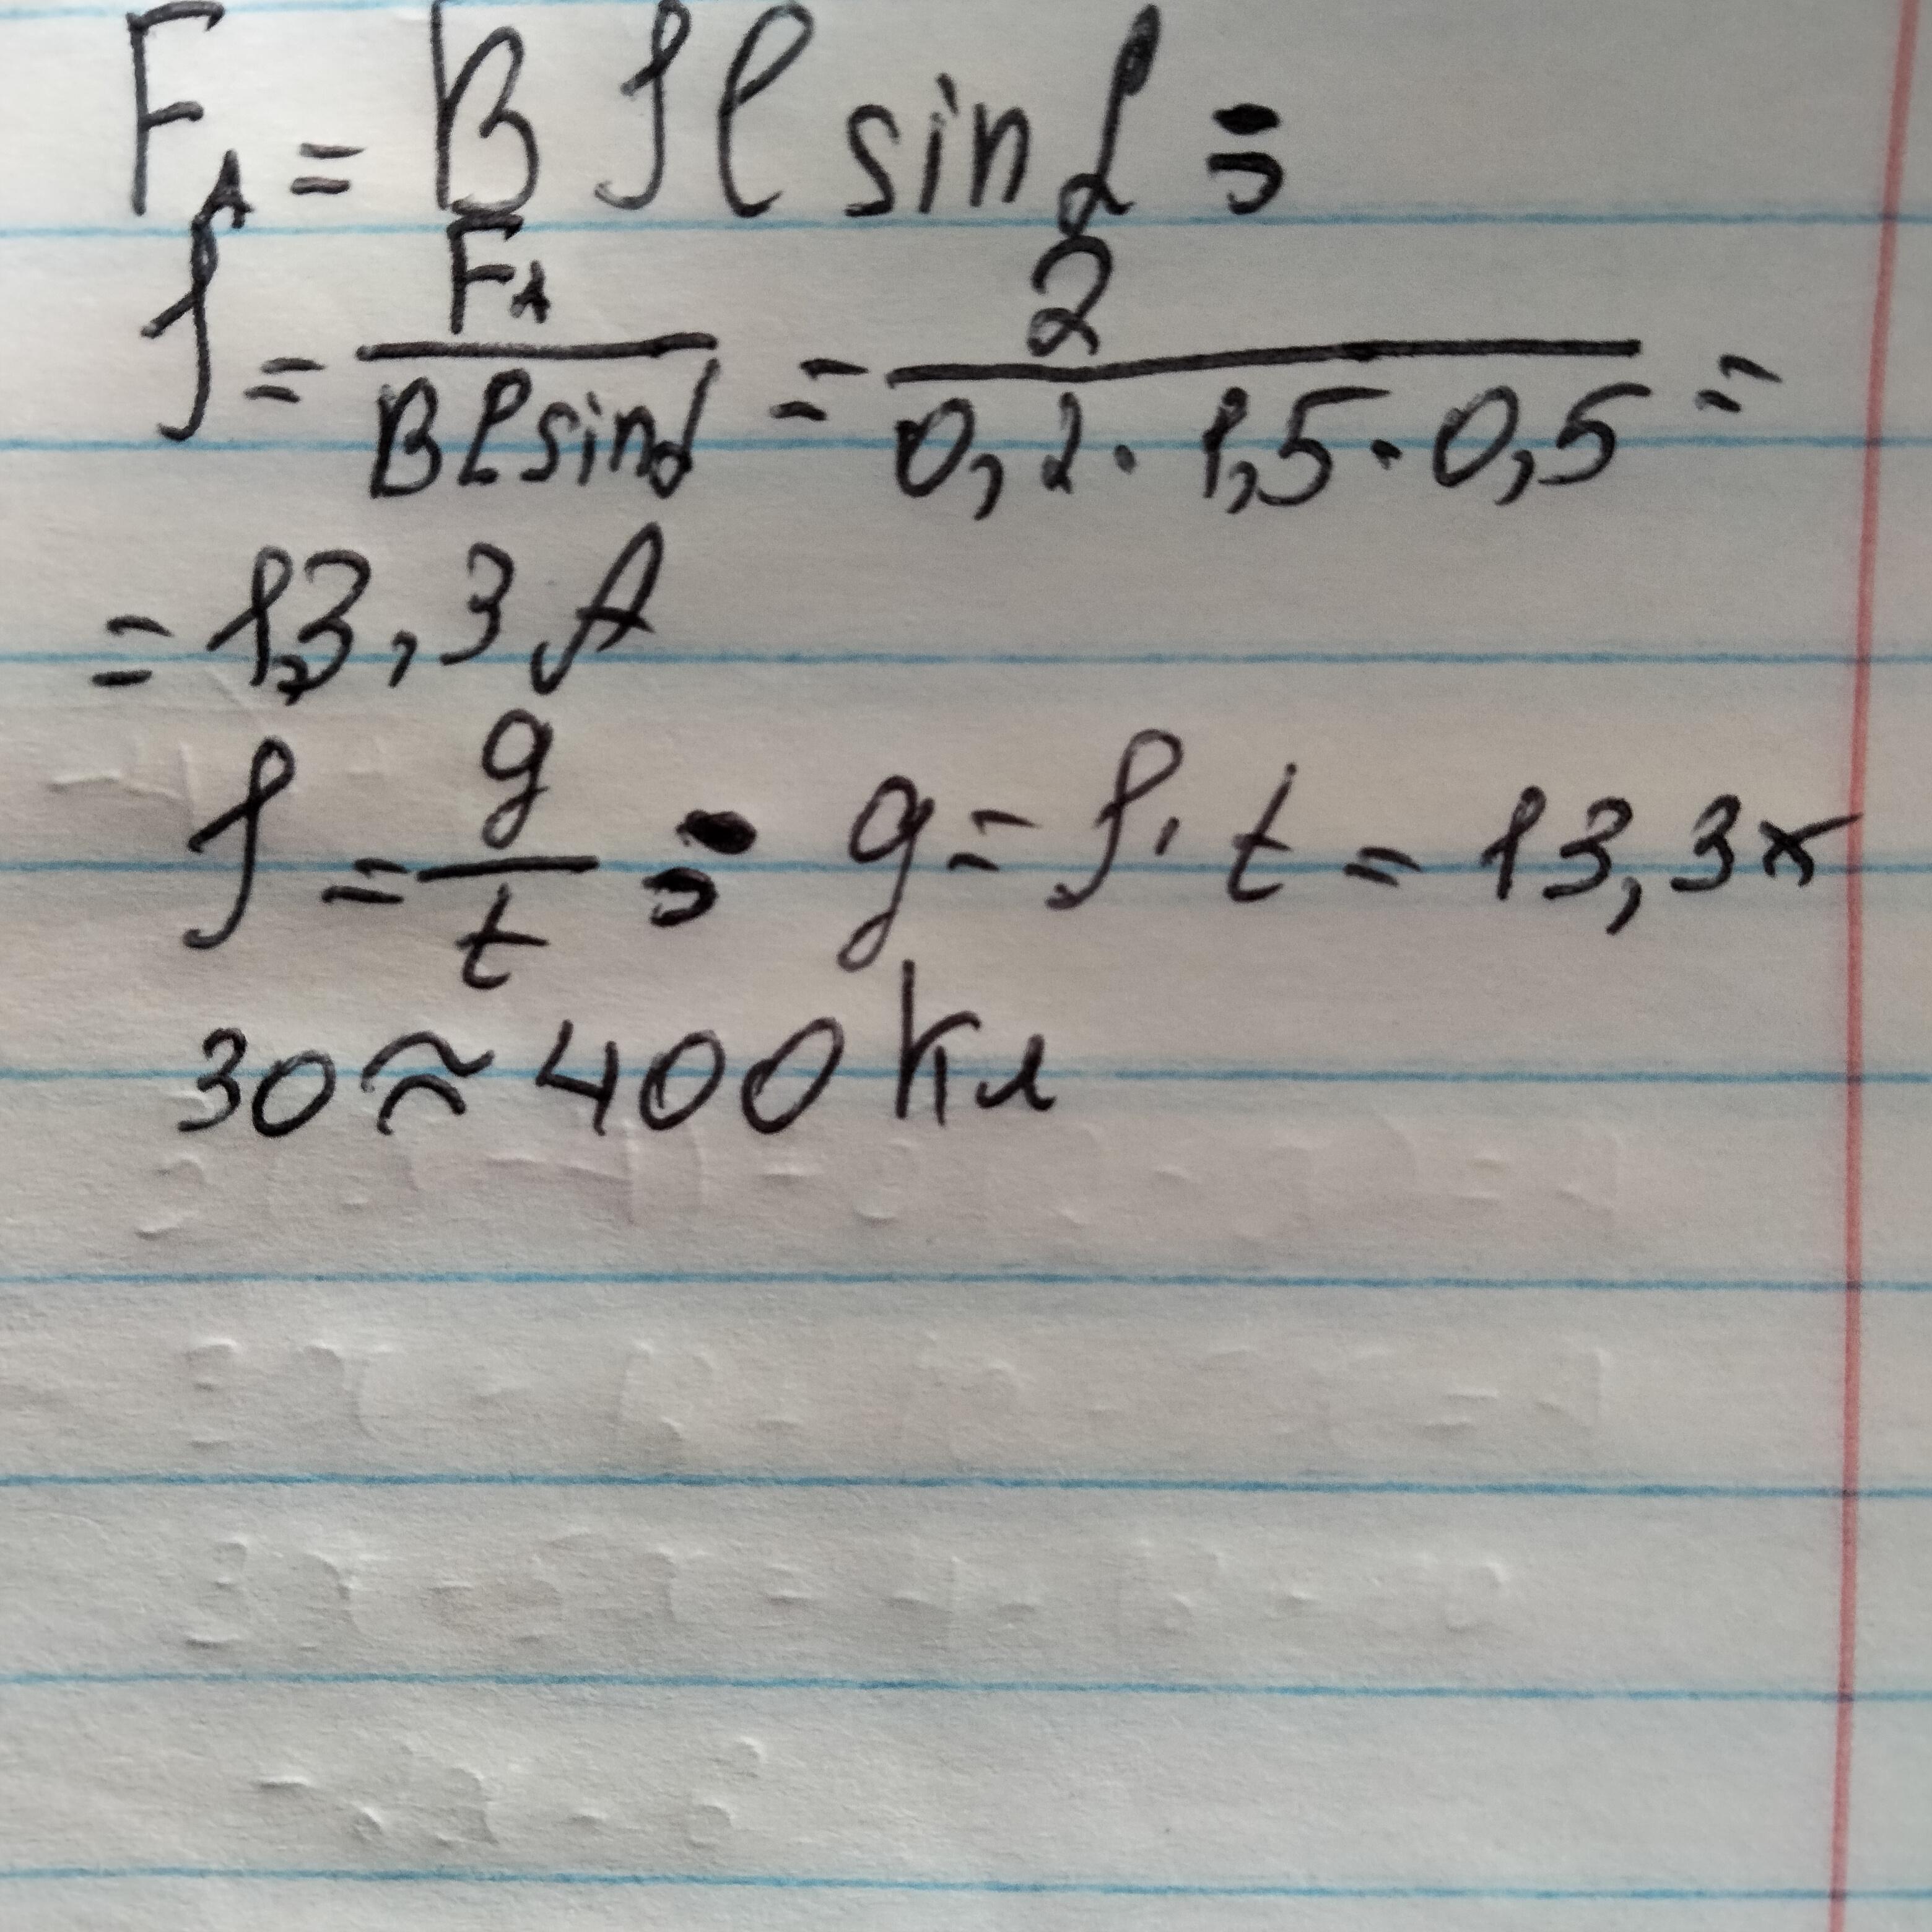 F_A = B I l sin α ;
I = F_A / (B l sin α) = 2 / (0,2 · 1,5 · 0,5) =
= 13,3 A
I = q / t ; q = I · t = 13,3 ×
30 ≈ 400 Кл